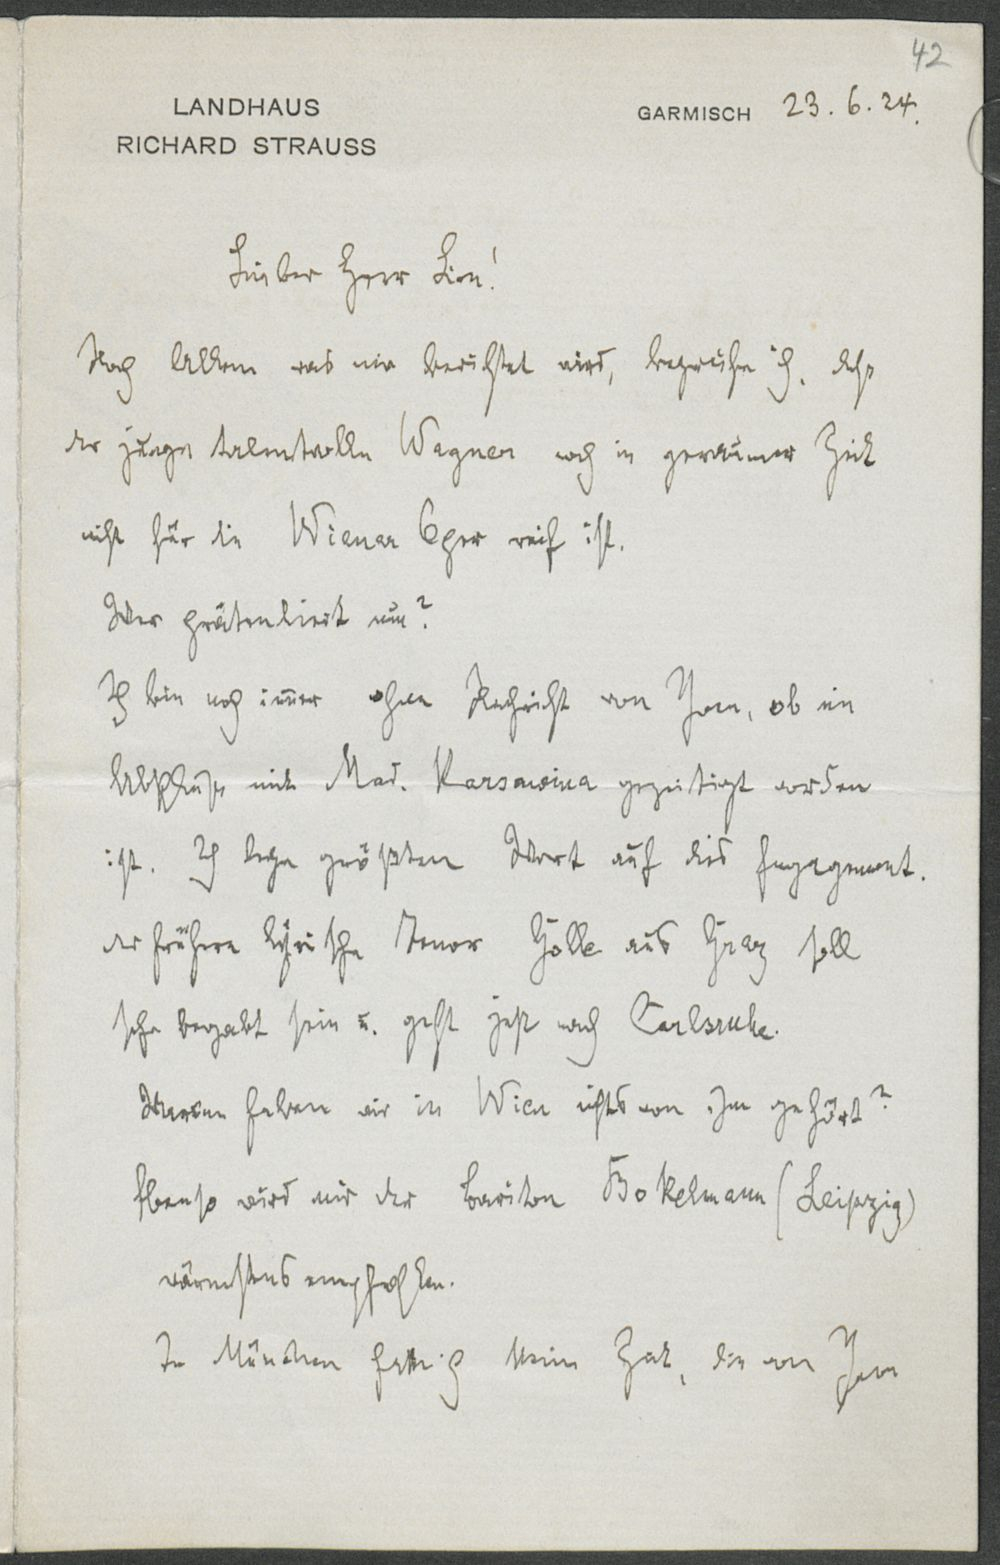 42
LANDHAUS
RICHARD STRAUSS
GARMISCH 23. 6. 24.
Lieber Herr Lion!
Nach Allem was mir berichtet wird, begreife ich, daß
der junge talentvolle Wagner noch in geraumer Zeit
nicht für die Wiener Oper reif ist.
Wer prätendiert nun?
Ich bin noch immer ohne Nachricht von Ihnen, ob ein
Abschluß mit Mad. Karsawina gezeitigt worden
ist. Ich lege größten Wert auf dies Engagement.
der frühere lyrische Tenor Gölle aus Graz soll
sehr begabt sein u. geht jetzt nach Carlsruhe.
Warum haben wir in Wien nichts von ihm gehört?
Ebenso wird mir der Bariton Bokelmann (Leipzig)
wärmstens empfohlen.
In München hatte ich keine Zeit, die von Ihnen